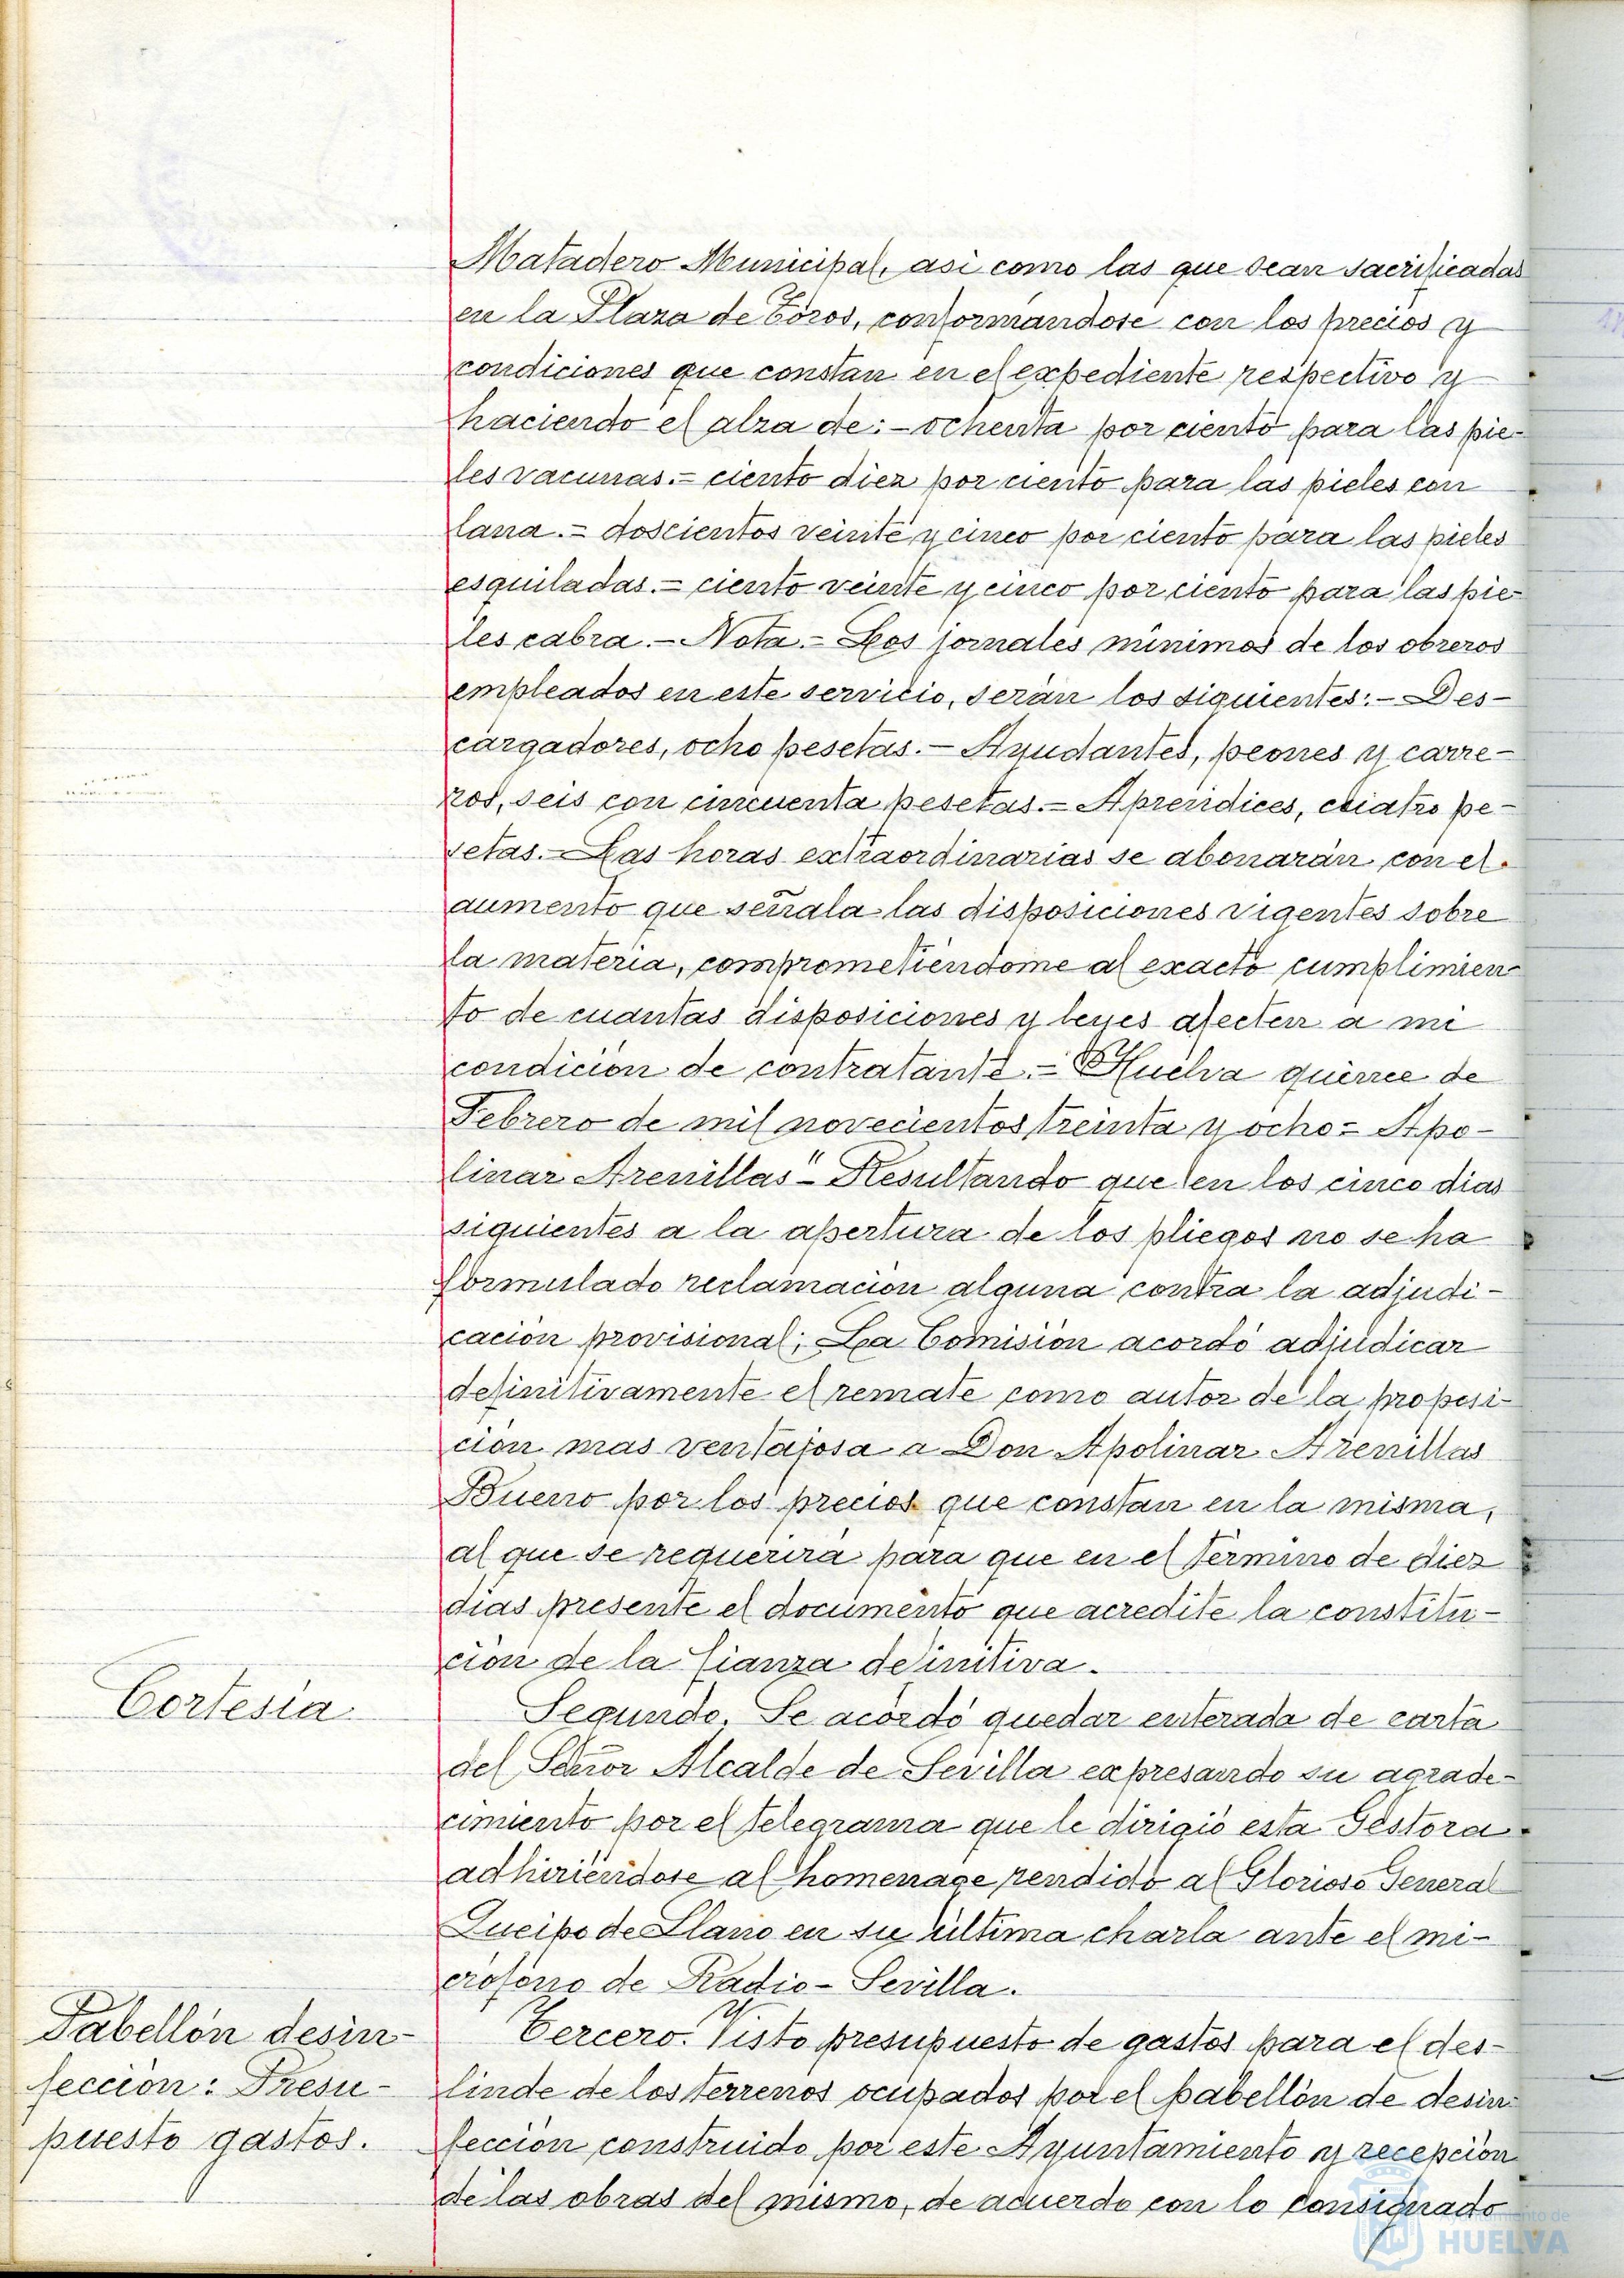 Matadero Municipal, asi como las que sean sacrificadas
en la Plaza de Toros, conformandose con los precios y
condiciones que constan en el expediente respectivo y
haciendo el alza de:- ochenta por ciento para las pie-
les vacunas.= ciento diez por ciento para las pieles con
lana.= doscientos veinte y cinco por ciento para las pieles
esquiladas.= ciento veinte y cinco por ciento para las pie-
les cabra.- Nota.- Los jornales mínimos de los obreros
empleados en este servicio, serán los siguientes:- Des-
cargadores, ocho pesetas.- Ayudantes, peones y carre-
ros, seis con cincuenta pesetas.= Aprendices, cuatro pe-
setas.- Las horas extraordinarias se abonarán con el
aumento que señala las disposiciones vigentes sobre
la materia, comprometiéndome al exacto cumplimien-
to de cuantas disposiciones y leyes afecten a mi
condición de contratante.= Huelva quince de
Febrero de mil novecientos treinta y ocho= Apo-
linar Arenillas"- Resultando que en los cinco dias
siguientes a la apertura de los pliegos no se ha
formulado reclamación alguna contra la adjudi-
cación provisional; La Comisión acordó adjudicar
definitivamente el remate como autor de la proposi-
ción mas ventajosa a Don Apolinar Arenillas
Bueno por los precios que constan en la misma,
al que se requerirá para que en el término de diez
dias presente el documento que acredite la constitu-
ción de la fianza definitiva.
Cortesía
Segundo. Se acordó quedar enterada de carta
del Señor Alcalde de Sevilla expresando su agrade-
cimiento por el telegrama que le dirigió esta Gestora
adhiriéndose al homenage rendido al Glorioso General
Queipo de Llano en su última charla ante el mi-
crófono de Radio-Sevilla.
Pabellón desin-
fección: Presu-
puesto gastos.
Tercero. Visto presupuesto de gastos para el des-
linde de los terrenos ocupados por el pabellón de desin-
fección construido por este Ayuntamiento y recepción
de las obras del mismo, de acuerdo con lo consignado
Ayuntamiento de
HUELVA